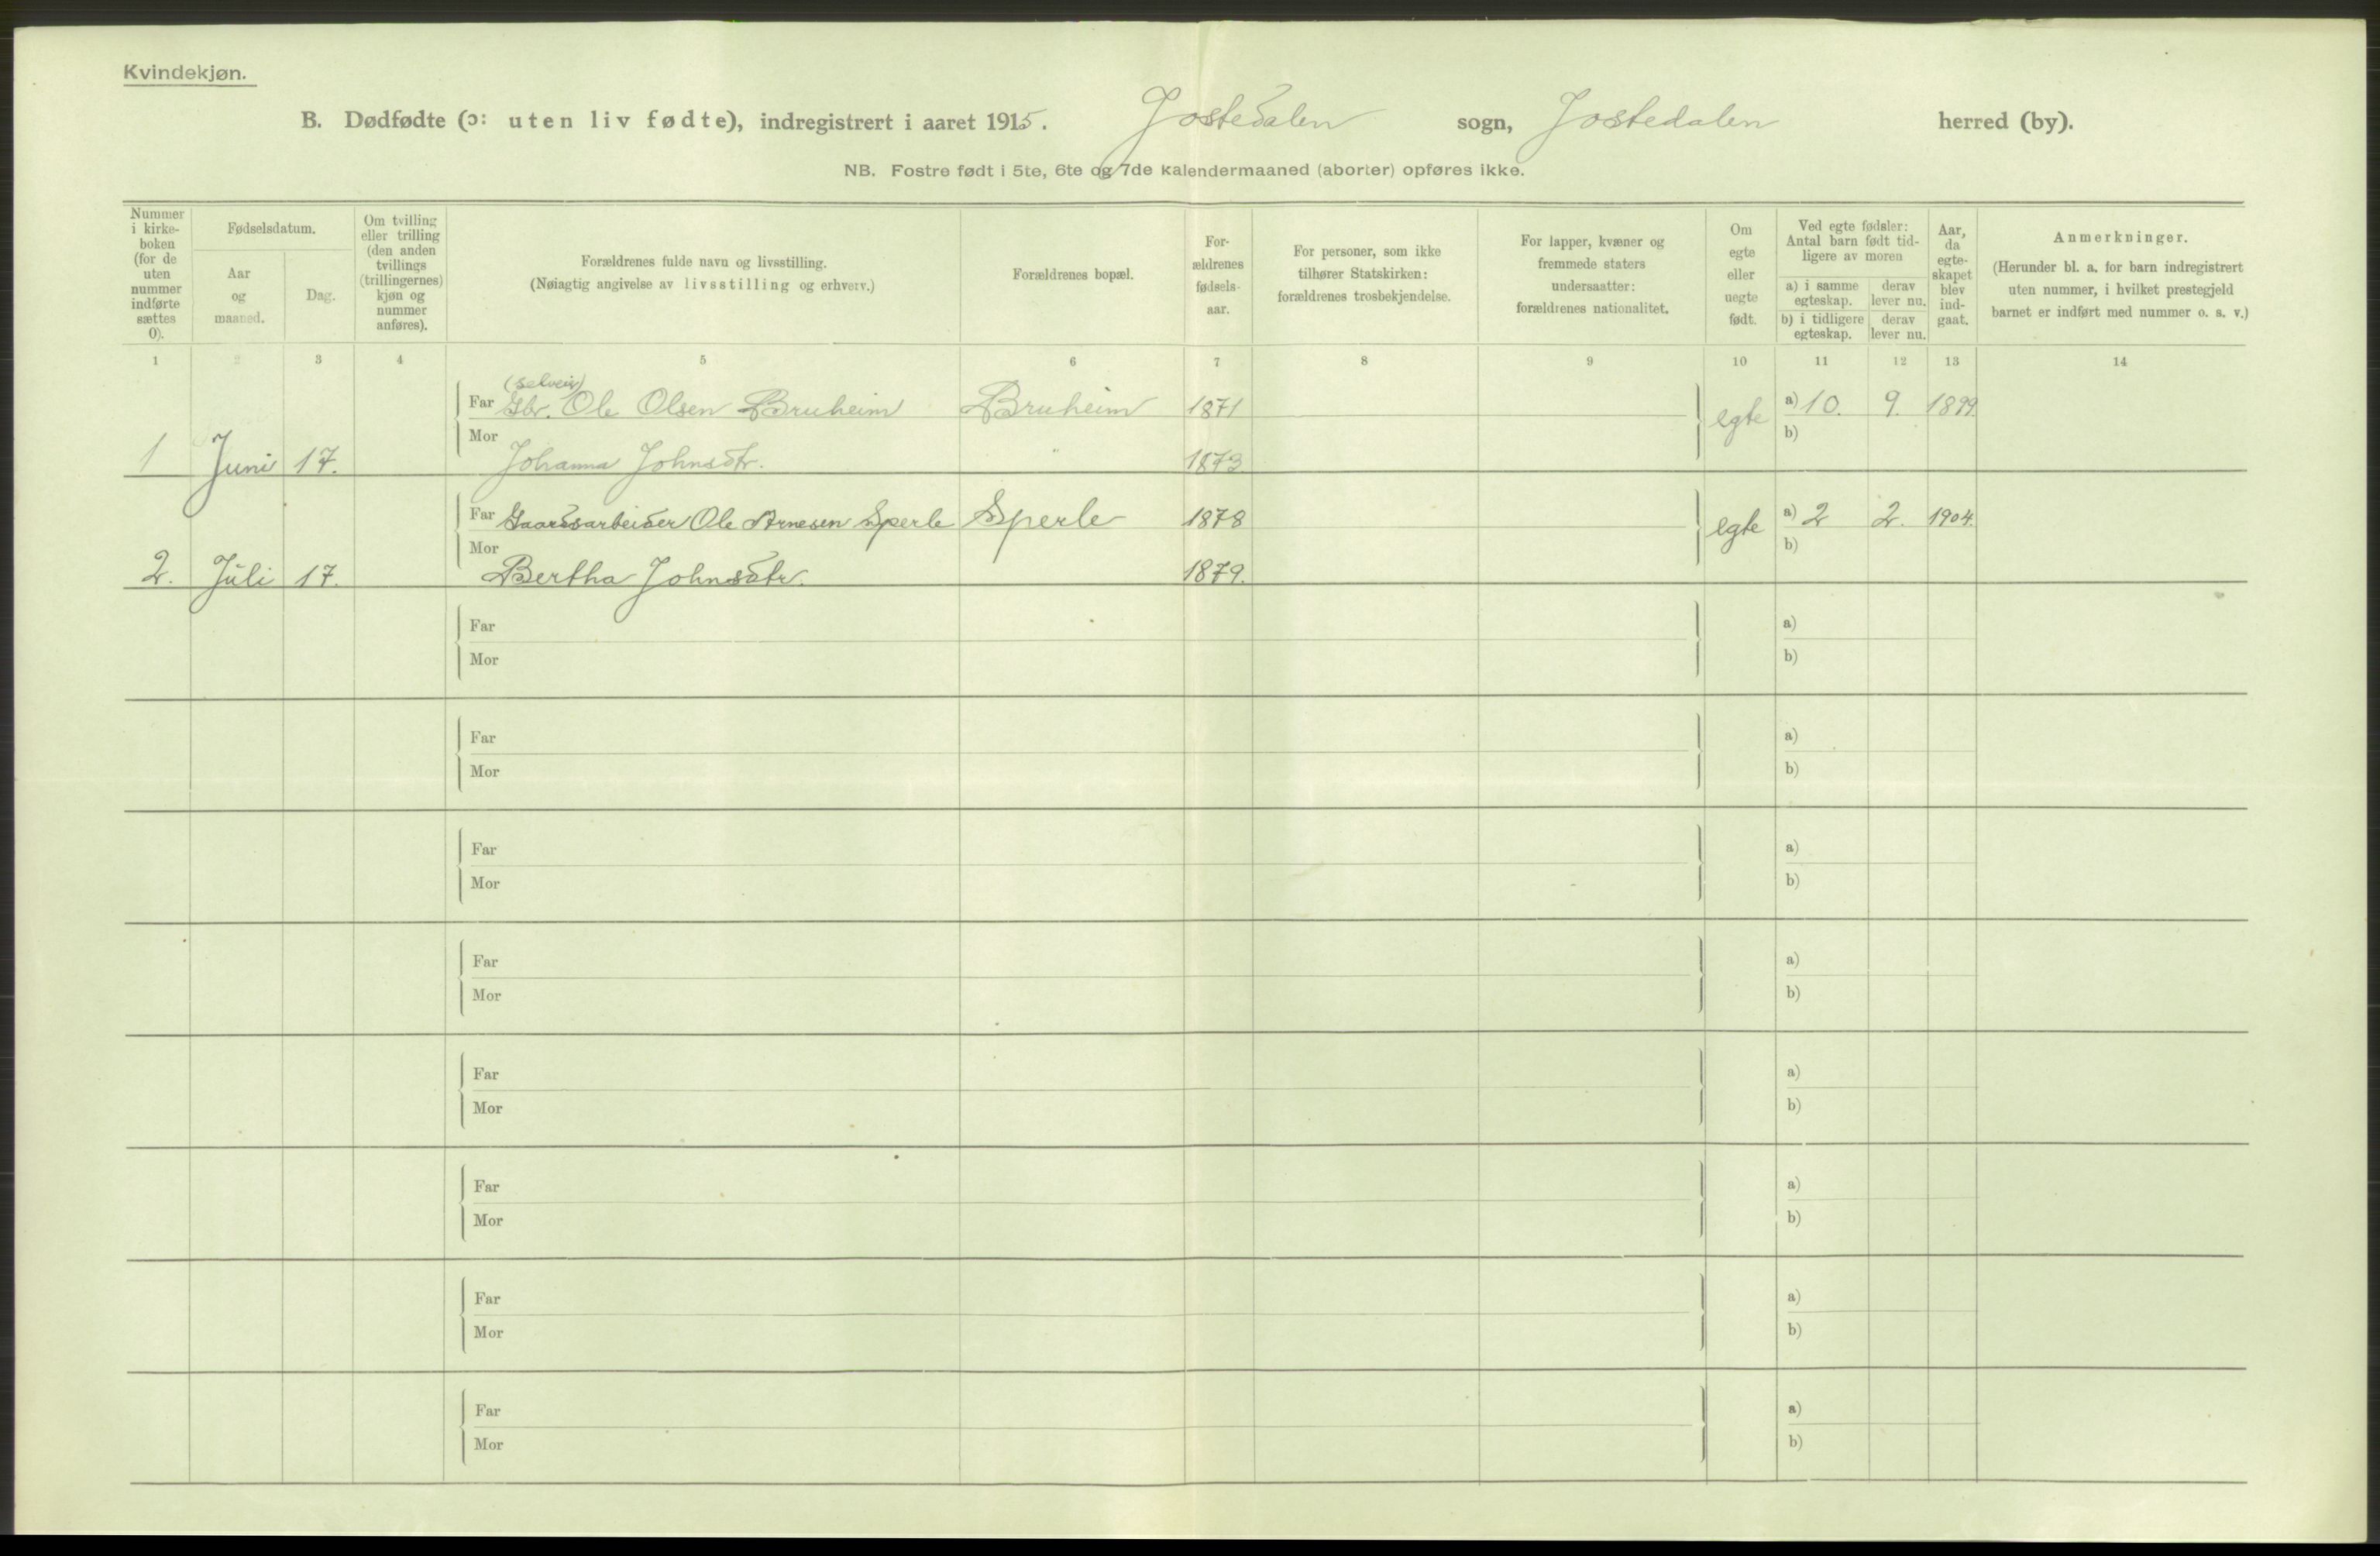 Kvindekjøn.
B. Dødfødte (ɔ: uten liv fødte), indregistrert i aaret 1915. Jostedalen sogn, Jostedalen herred (by).
NB. Fostre født i 5te, 6te og 7de kalendermaaned (aborter) opføres ikke.
Nummer i kirke- boken (for de uten nummer indførte sættes 0).
Fødselsdatum.
Aar og maaned.
Dag.
Om tvilling eller trilling (den anden tvillings (trillingernes) kjøn og nummer anføres).
Forældrenes fulde navn og livsstilling.
(Nøiagtig angivelse av livsstilling og erhverv.)
Forældrenes bopæl.
For- ældrenes fødsels- aar.
For personer, som ikke tilhører Statskirken: forældrenes trosbekjendelse.
For lapper, kvæner og fremmede staters undersaatter: forældrenes nationalitet.
Om egte eller uegte født.
Ved egte fødsler: Antal barn født tid- ligere av moren
a) i samme egteskap.
derav lever nu.
b) i tidligere egteskap.
derav lever nu.
Aar, da egte- skapet blev ind- gaat.
Anmerkninger.
(Herunder bl. a. for barn indregistrert uten nummer, i hvilket prestegjeld barnet er indført med nummer o. s. v.)
1 2 3 4 5 6 7 8 9 10 11 12 13 14
(selveier)
Far Gbr. Ole Olsen Bruheim Bruheim 1871 egte a) 10. 9. 1899
b)
1 Juni 17. Mor Johanna Johnsdtr. " 1873
Far Gaardsarbeider Ole Arnesen Sperle Sperle 1878 egte a) 2 2. 1904.
b)
2. Juli 17. Mor Bertha Johnsdtr. 1879.
Far a)
Mor b)
Far a)
Mor b)
Far a)
Mor b)
Far a)
Mor b)
Far a)
Mor b)
Far a)
Mor b)
Far a)
Mor b)
Far a)
Mor b)